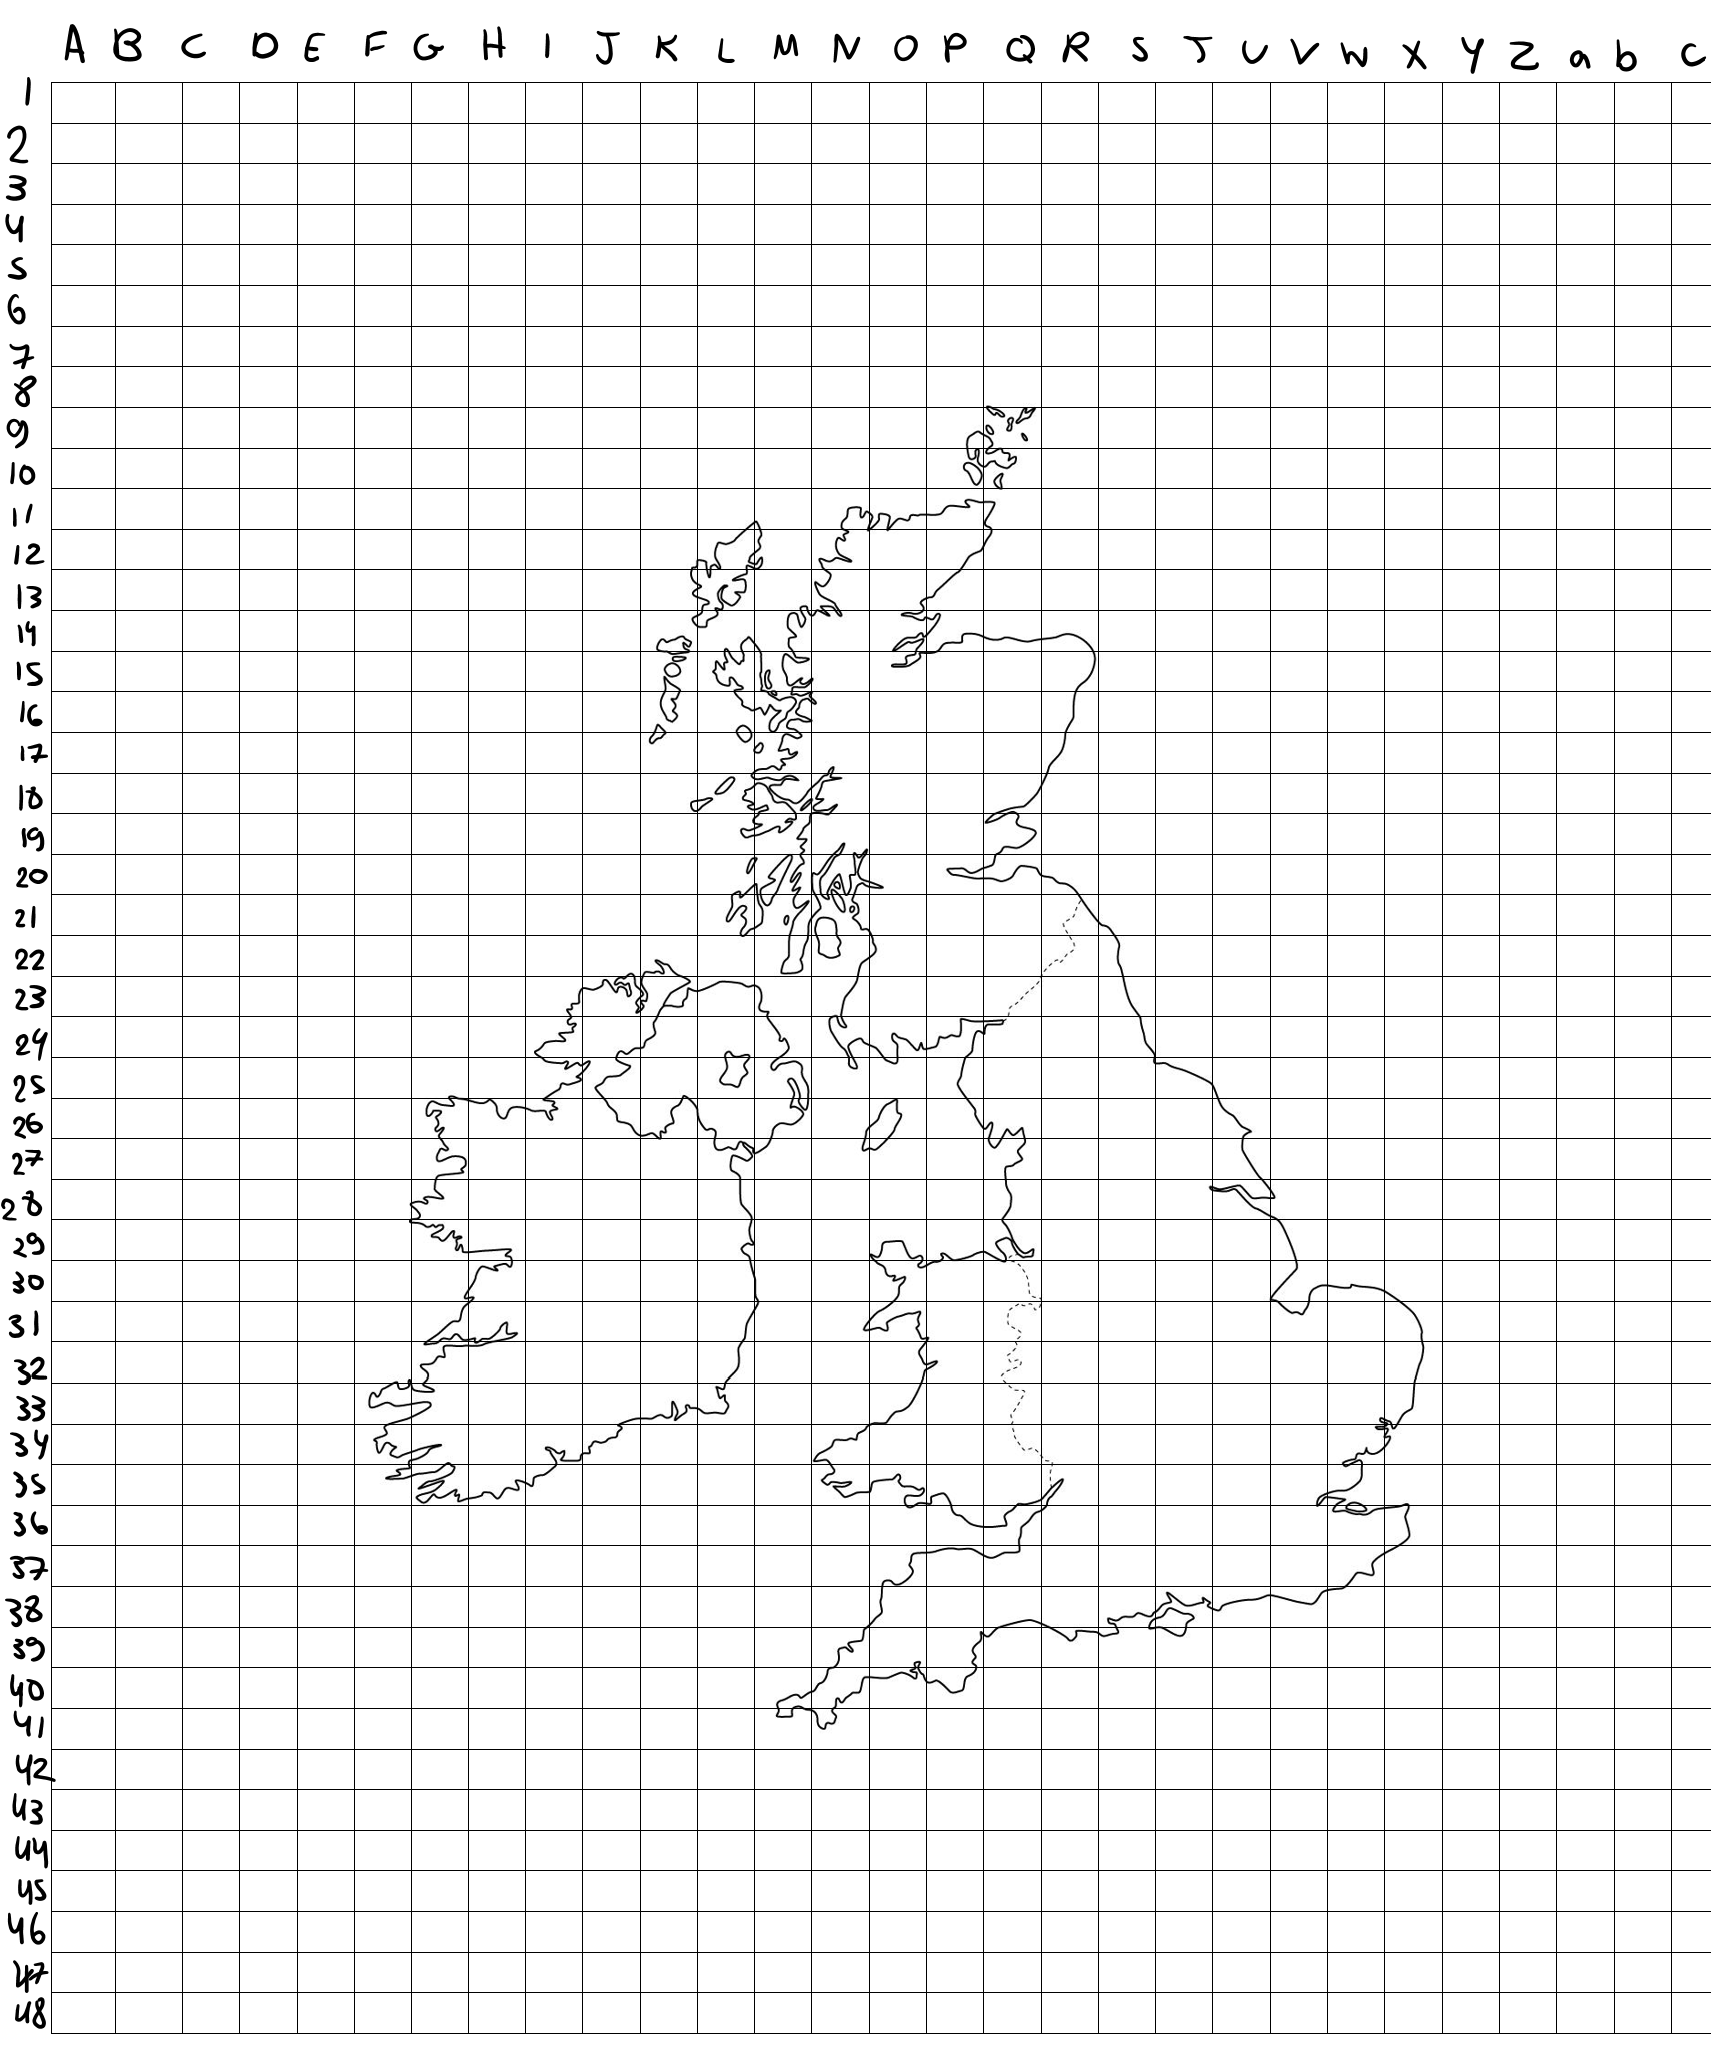 A B C D E F G H I J K L M N O P Q R S T U V W X Y Z a b c
1
2
3
4
5
6
7
8
9
10
11
12
13
14
15
16
17
18
19
20
21
22
23
24
25
26
27
28
29
30
31
32
33
34
35
36
37
38
39
40
41
42
43
44
45
46
47
48